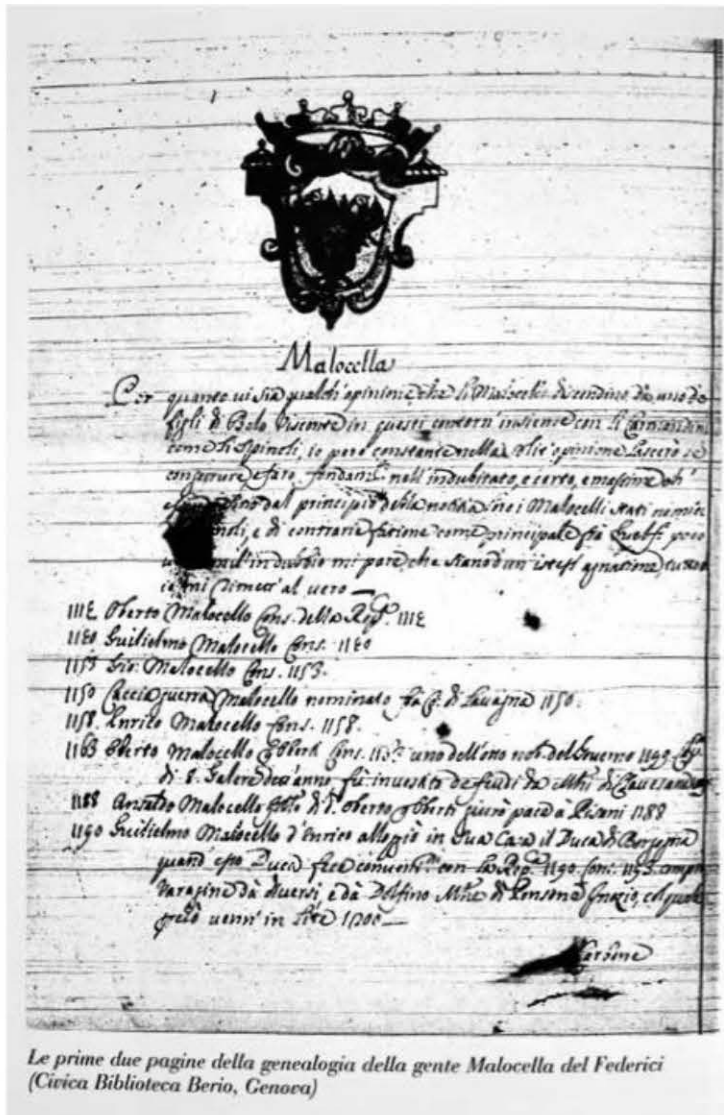 Malocella
Per quanto vi sia qualch' opinione, che li Malocelli discendino da uno de
figli di Belo Visconte in questi contorni insieme con li Carmandini
come li Spinoli, io però constante nella solit' opinione lascerò le
conjetture e farò fondam.to nell' indubitato, e certo, e massime ch'
dal principio della notitia sino i Malocelli stati nemici
e di contraria fatione come principale frà Guelfi poco
in dubbio mi pare, che siano d'un istess' agnatione, tutto
mi rimett' al vero
111E Oberto Malocello Cons. della Rep.ca 111E
11E0 Guilielmo Malocello Cons. 11E0
1153 Gio: Malocello Cons. 1153.
1150 Cacciaguerra Malocello nominato frà C. di Lavagna 1150.
1158. Enrico Malocello Cons. 1158.
1163 Oberto Malocello Cons. uno dell'otto nob. del Governo
di 8. Galere dett'anno fù investito de feudi da
1188 Ansaldo Malocello di Oberto giurò pace à Pisani 1188
1190 Guilielmo Malocello d'Enrico alloggiò in sua Casa il Duca di Borgogna
quand' esso Duca fece convent.ni con la Rep.ca 1190. Cons. 1193. comprò
Varagine dà diversi, e dà Delfino
però venn' in lite 1200
Le prime due pagine della genealogia della gente Malocella del Federici
(Civica Biblioteca Berio, Genova)